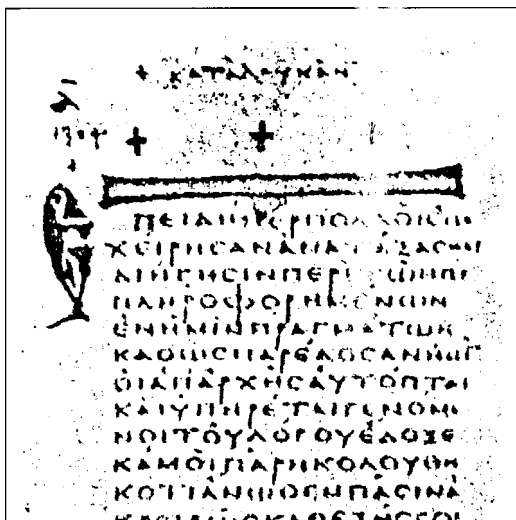 + ΚΑΤΑΛΟΥΚΑΝ
+ +
ΕΠΕΙΔΗΠΕΡΠΟΛΛΟΙΕΠΕ
ΧΕΙΡΗϹΑΝΑΝΑΤΑΞΑϹΘΑΙ
ΔΙΗΓΗϹΙΝΠΕΡΙΤΩΝΠΕ
ΠΛΗΡΟΦΟΡΗΜΕΝΩΝ
ΕΝΗΜΙΝΠΡΑΓΜΑΤΩΝ
ΚΑΘΩϹΠΑΡΕΔΟϹΑΝΗΜΙ
ΟΙΑΠΑΡΧΗϹΑΥΤΟΠΤΑΙ
ΚΑΙΥΠΗΡΕΤΑΙΓΕΝΟΜΕ
ΝΟΙΤΟΥΛΟΓΟΥΕΔΟΞΕ
ΚΑΜΟΙΠΑΡΗΚΟΛΟΥΘΗ
ΚΟΤΙΑΝΩΘΕΝΠΑϹΙΝΑ
ΚΡΙΒΩϹΚΑΘΕΞΗϹϹΟΙ